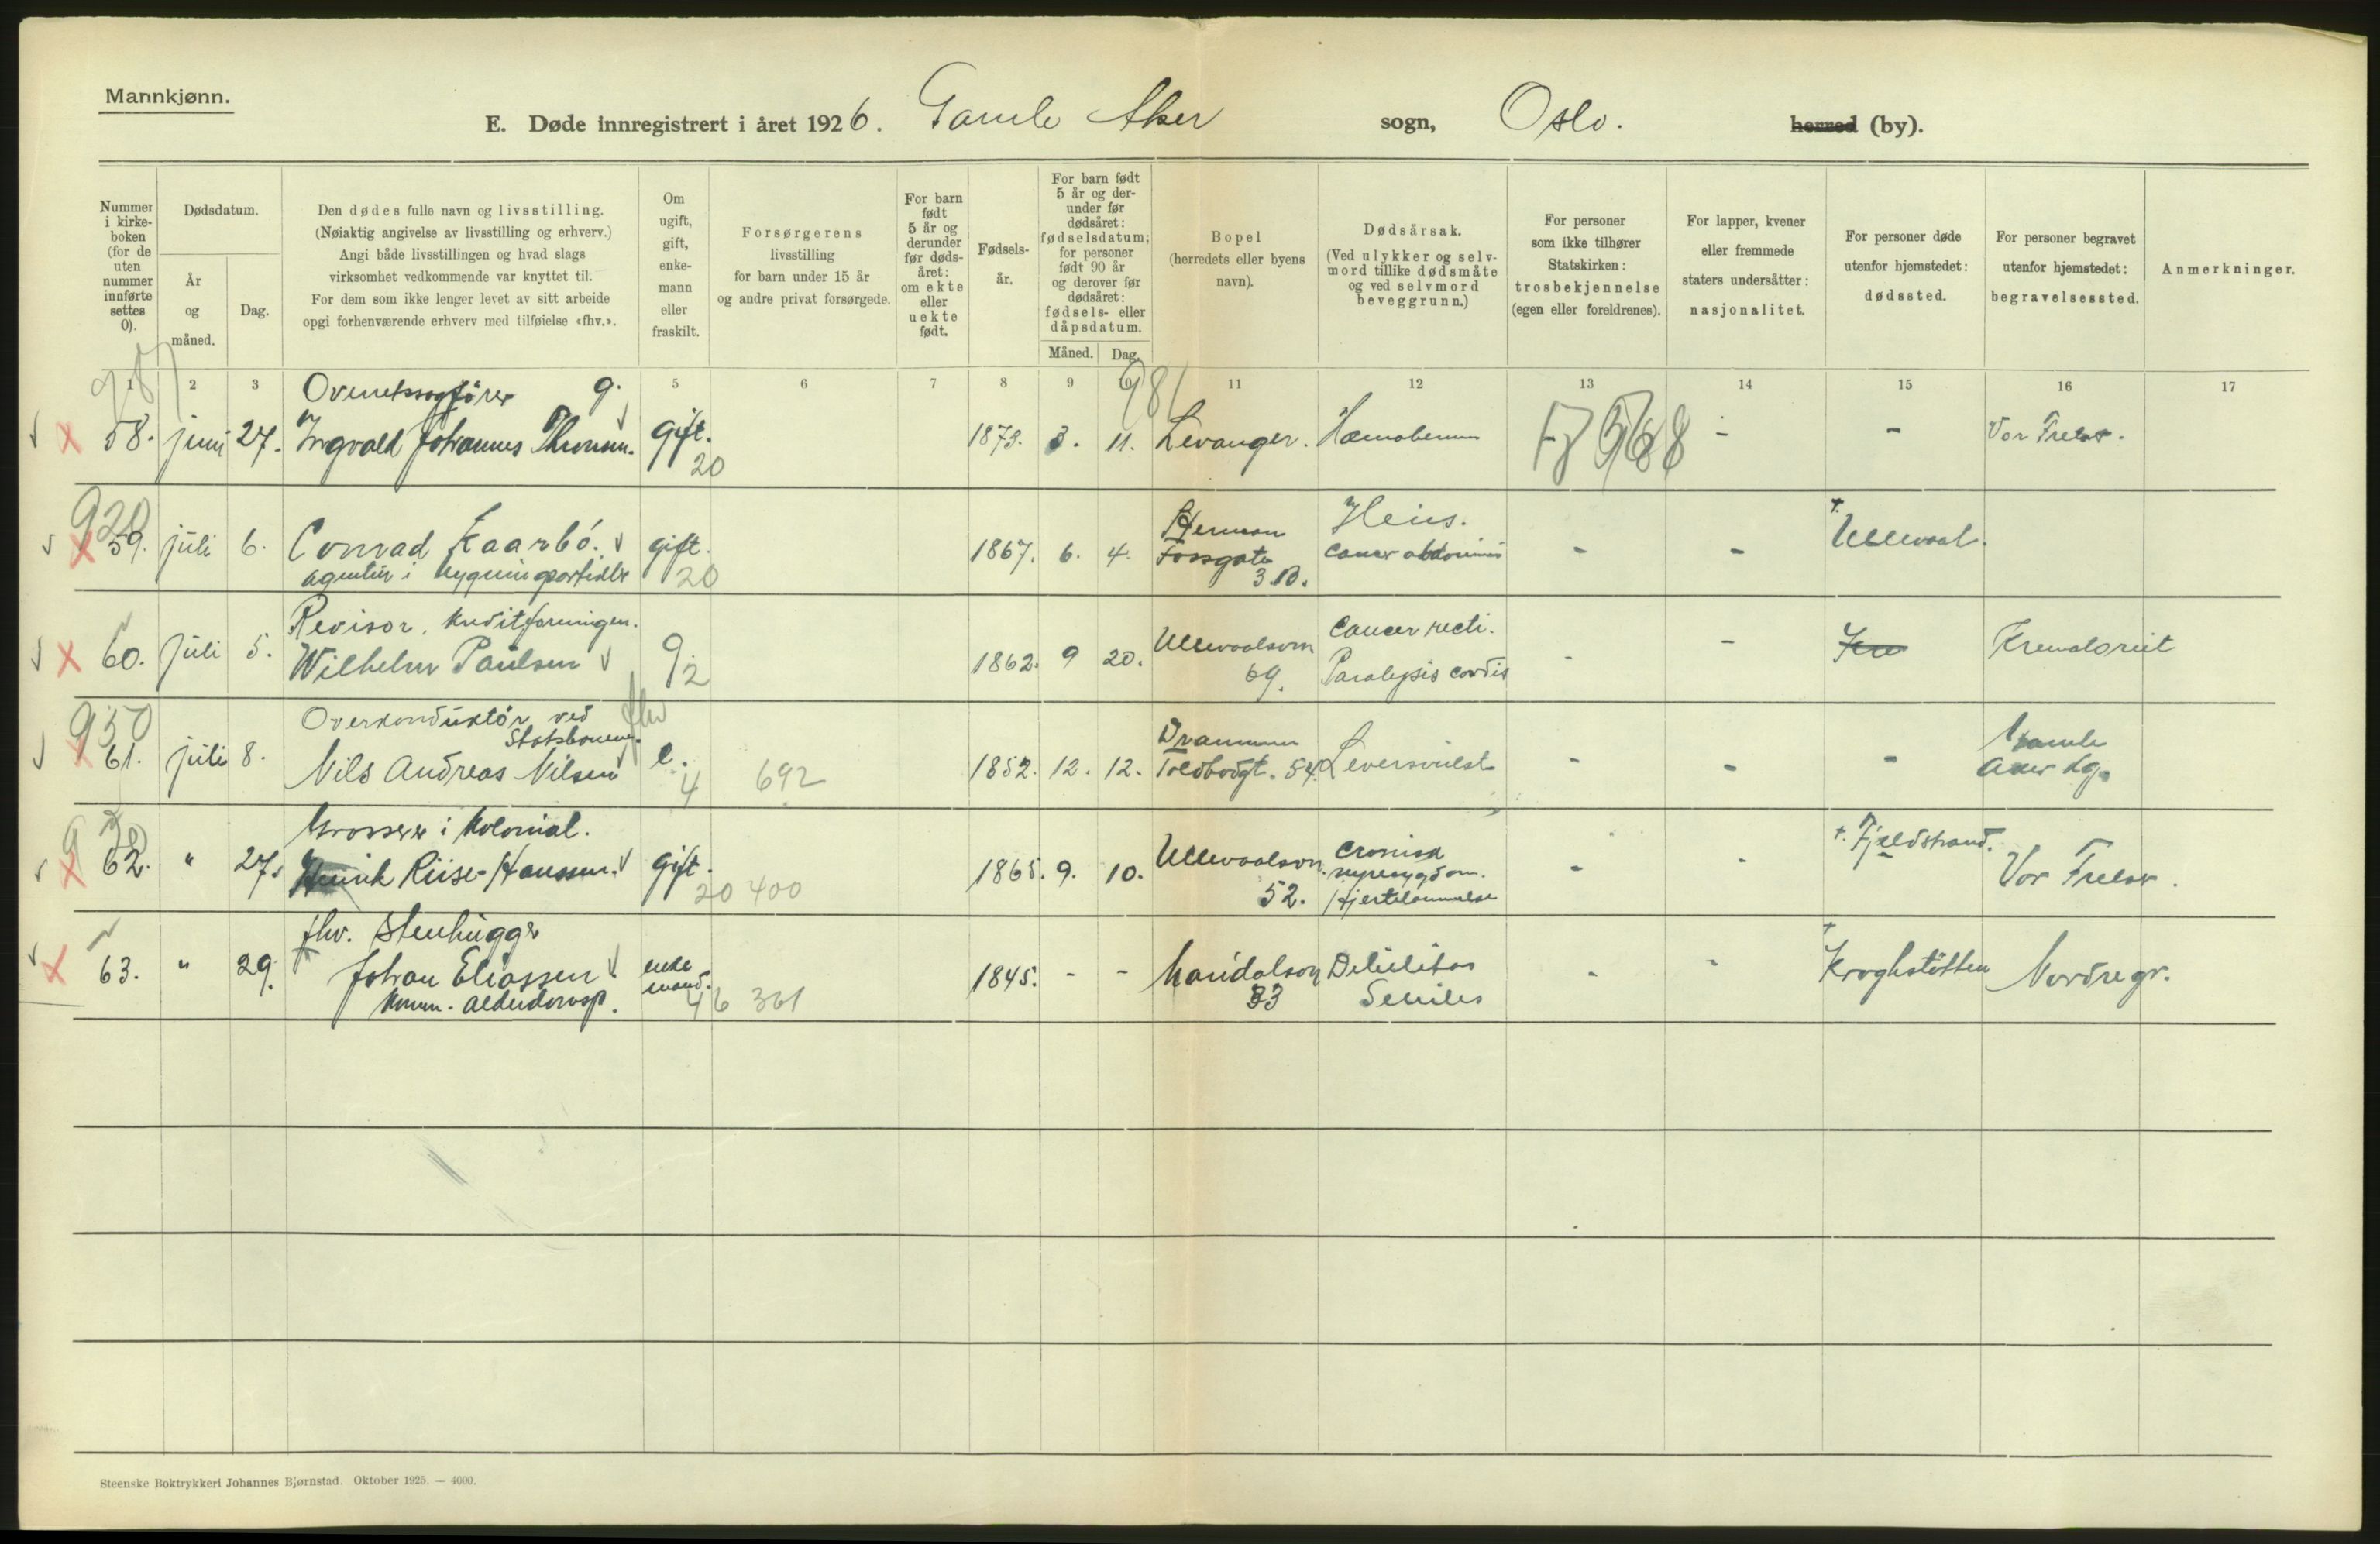 Mannkjønn.
E. Døde innregistrert i året 1926. Gamle Aker sogn, Oslo. herred (by).
Nummer i kirke-boken (for de uten nummer innførte settes 0).
Dødsdatum.
År og måned.
Dag.
Den dødes fulle navn og livsstilling.
(Nøiaktig angivelse av livsstilling og erhverv.)
Angi både livsstillingen og hvad slags
virksomhet vedkommende var knyttet til.
For dem som ikke lenger levet av sitt arbeide
opgi forhenværende erhverv med tilføielse «fhv.».
Om ugift, gift, enke-mann eller fraskilt.
Forsørgerens
livsstilling
for barn under 15 år
og andre privat forsørgede.
For barn født 5 år og derunder før døds-året: om ekte eller uekte født.
Fødsels-år.
For barn født 5 år og der-under før dødsåret: fødselsdatum; for personer født 90 år og derover før dødsåret: fødsels- eller dåpsdatum.
Måned.
Dag.
Bopel
(herredets eller byens
navn).
Dødsårsak.
(Ved ulykker og selv-
mord tillike dødsmåte
og ved selvmord
beveggrunn.)
For personer
som ikke tilhører
Statskirken:
trosbekjennelse
(egen eller foreldrenes).
For lapper, kvener
eller fremmede
staters undersåtter:
nasjonalitet.
For personer døde
utenfor hjemstedet:
dødssted.
For personer begravet
utenfor hjemstedet:
begravelsessted.
Anmerkninger.
1 2 3 5 6 7 8 9 10 11 12 13 14 15 16 17
981
Overretssagfører g.
58. juni 27. Ingvald Johannes gift. 1873. 3. 11. Levanger. - - Vor Frelser.
20
59. juli 6. Conrad Kaarbó. gift. 1867. 6. 4. Herman Fossgate 3 B. Cancer abdominis - - † Ullevaal.
agentur i
20
Revisor, Kreditforeningen.
60. juli 5. Wilhelm Paulsen g 1862. 9 20. Ullevaalsvn 69. Cancer recti. Paralysis cordis - - Krematoriet
2
950
Overkonduktór ved Statsbanene. fhv
61. juli 8. Nils Andreas Nilsen e. 1852. 12. 12. Drammen Toldbodgt. 54. Leversvulst - - - Gamle Aker
4 692
Grosserer i Kolonial.
62. " 27. Henrik Riise-Hanssen. gift. 1865. 9. 10. Ullevaalsvn. 52. Cronisk nyresygdom. Hjertelammelse - - † Fjeldstrand. Vor Frelser.
20 400
fhv. Stenhugger
63. " 29. Johan Eliassen enke mand. 1845. - - Maridalsvn 33 Debilitas Seniles - - † Kroghstøtten Nordre gr.
Komm.
46 361
Steenske Boktrykkeri Johannes Bjørnstad. Oktober 1925. — 4000.